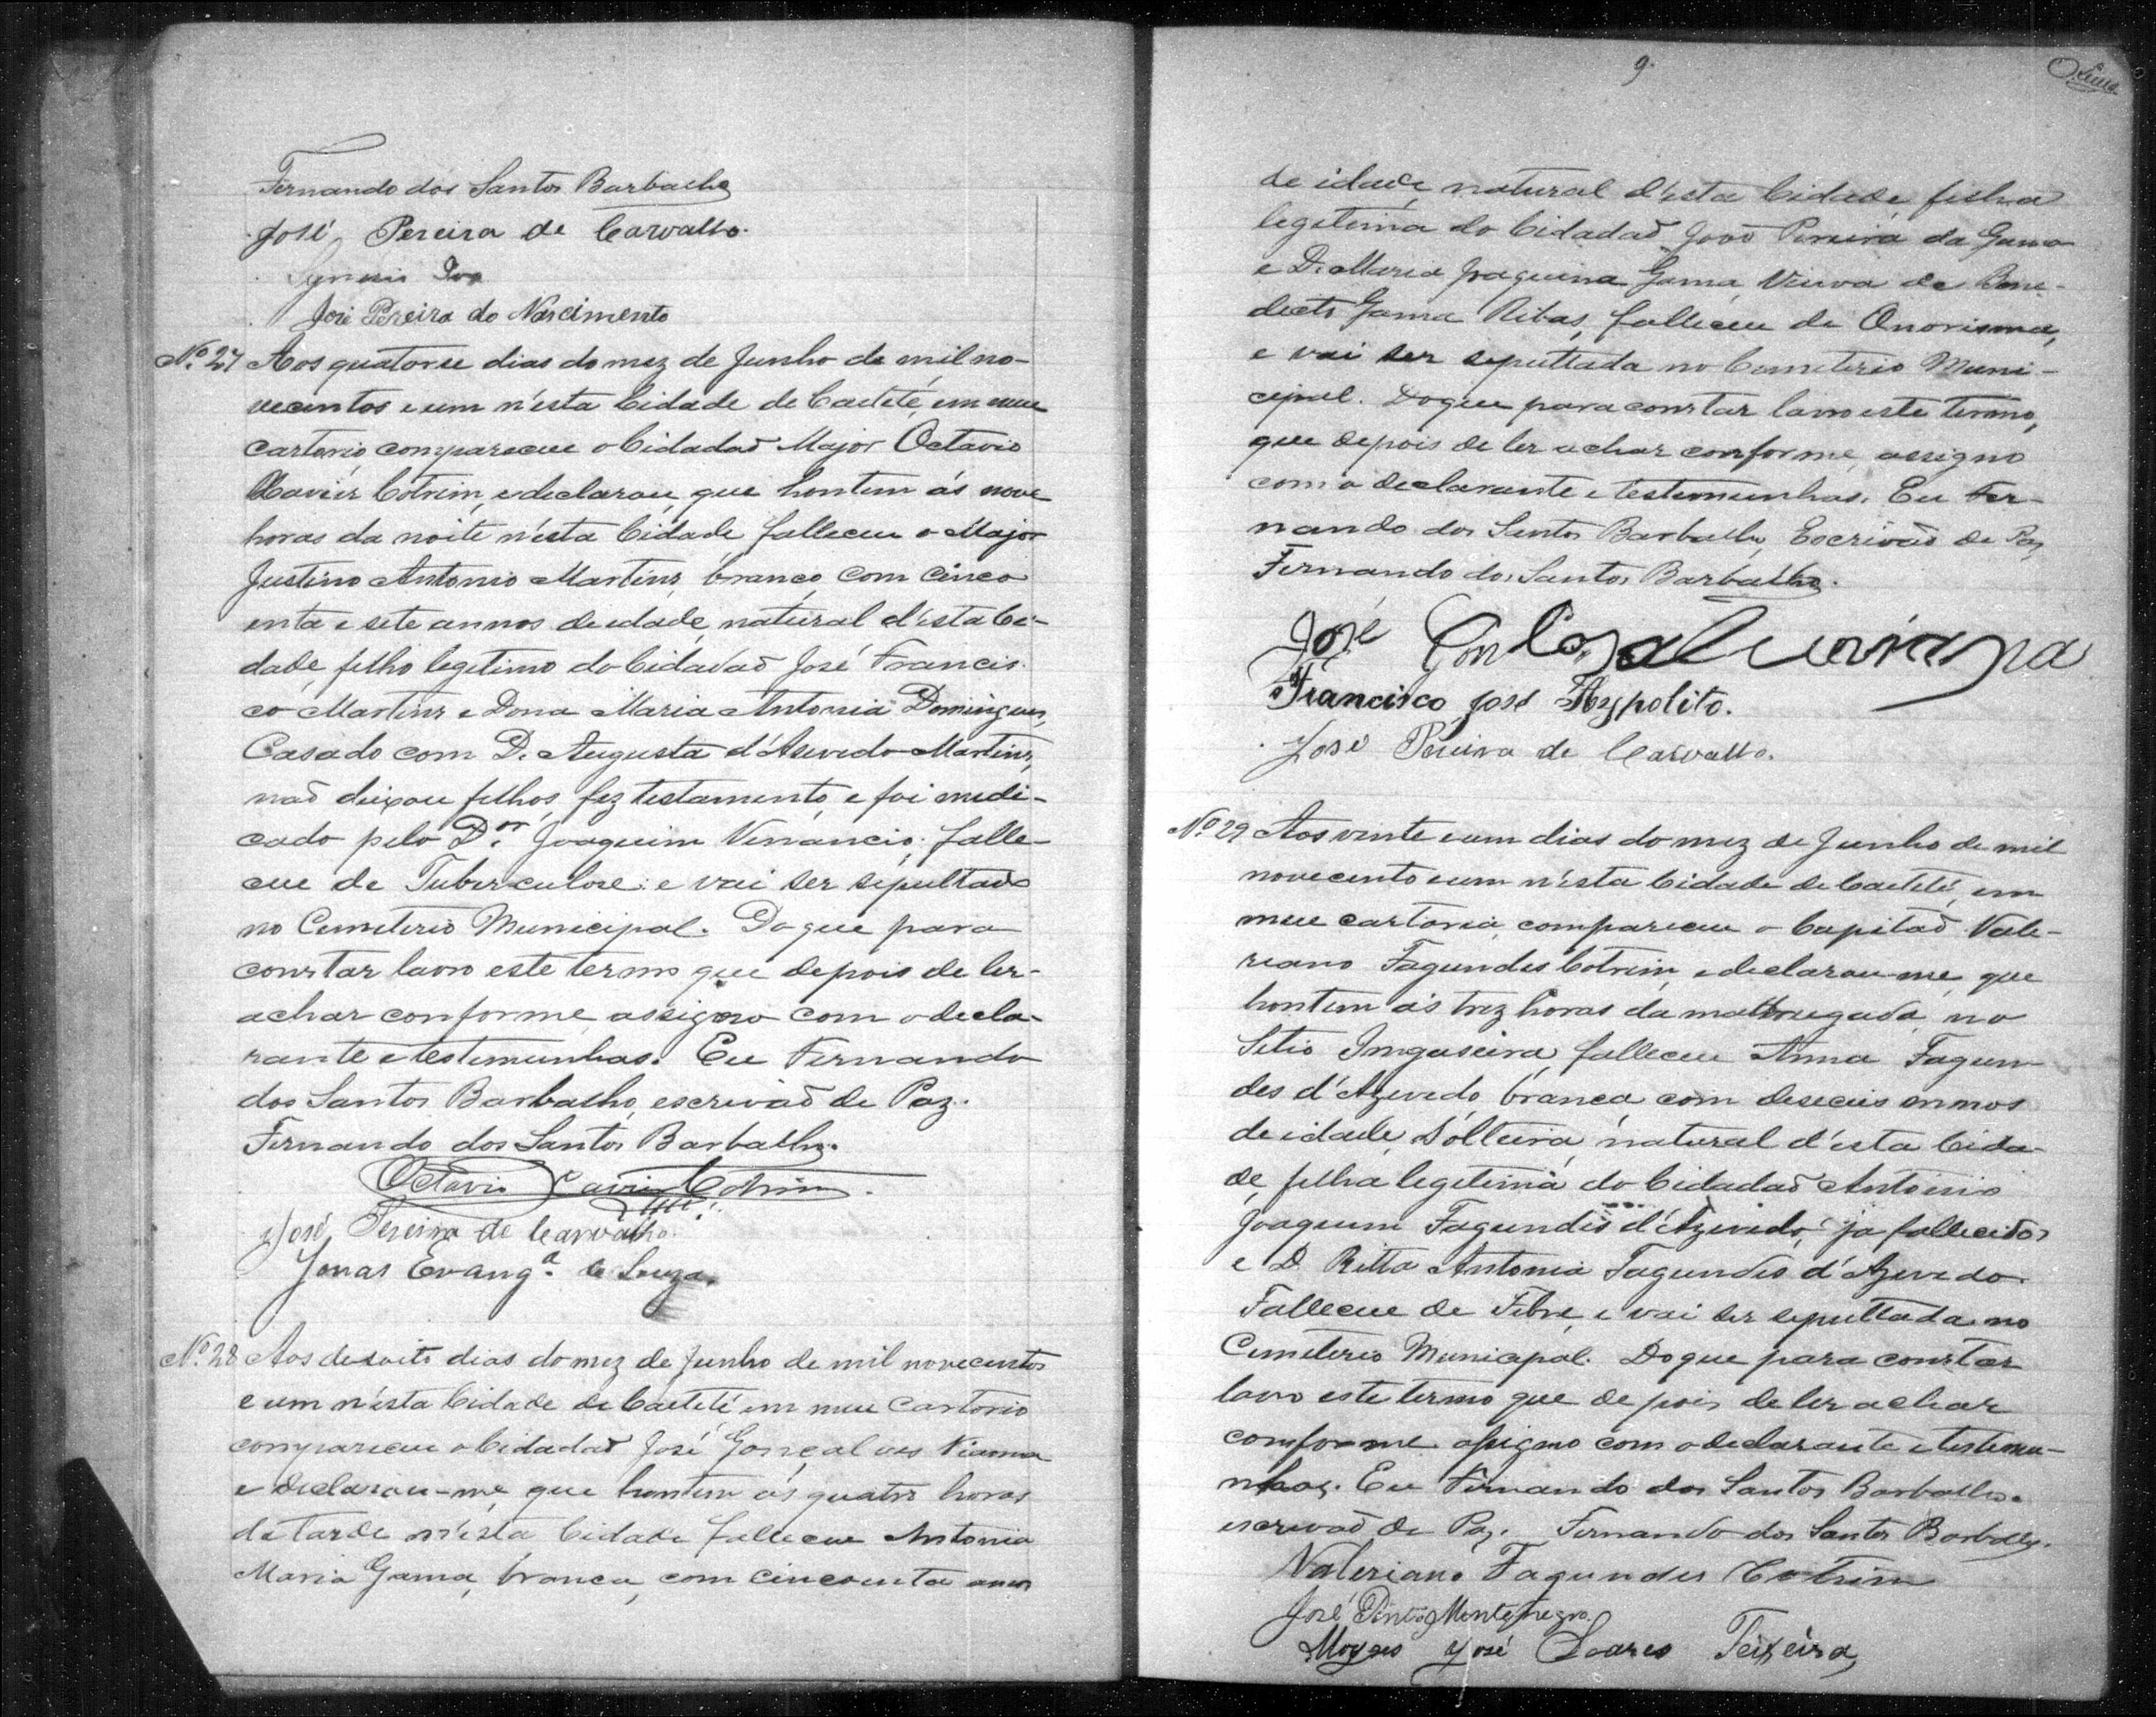 Fernando dos Santos Barbalho
José Pereira de Carvalho.
José Pereira do Nascimento
Nº 27 Aos quatorse dias do mez de Junho de mil no-
vecentos e um n'esta Cidade de Caeteté, em meu
cartorio compareceu o Cidadaõ Major Octavio
Xavier Cotrim, e declarou, que hontem ás nove
horas da noite n'esta Cidade falleceu o Major
Justino Antonio Martins, branco, com cinco
enta e sete annos de idade, natural d'esta Ci-
dade, filho legitimo do Cidadaõ José Francis-
co Martins e Dona Maria Antonia Domingues,
Casado com D. Augusta d'Asevedo Martins,
naõ deixou filhos, fez testamento, e foi medi-
cado pelo D.or Joaquim Venancio; falle-
ceu de Tuberculose; e vai ser sepultado
no Cemiterio Municipal. Do que para
constar lavro este termo que depois de ler
achar conforme, assigno com o decla-
rante e testemunhas. Eu Fernando
dos Santos Barbalho, escrivaõ de Paz.
Fernando dos Santos Barbalho.
Octavio Xavier Cotrim
José Pereira de Carvalho.
Jonas Evang.a de Souza.
Nº 28 Aos desoito dias do mez de Junho de mil novecentos
e um n'esta Cidade de Caeteté em meu Cartorio
compareceu o Cidadaõ José Gonçalves Vianna
e declarou-me, que hontem ás quatro horas
da tarde n'esta Cidade falleceu Antonia
Maria Gama, branca, com cincoenta annos
9.
de idade, natural d'esta Cidade, filha
legitima do Cidadaõ Joaõ Pereira da Gama
e D. Maria Joaquina Gama, Viuva de Bene-
dicto Gama Ribas, falleceu de Anorisma,
e vai ser sepultada no Cemiterio Muni-
cipal. Do que para constar lavro este termo,
que depois de ler achar conforme, assigno
com o declarante e testemunhas. Eu Fer-
nando dos Santos Barbalho, Escrivaõ de Paz
Fernando dos Santos Barbalho.
José
Francisco José Hypolito.
José Pereira de Carvalho.
Nº 29 Aos vinte e um dias do mez de Junho de mil
novecento e um n'esta Cidade de Caeteté, em
meu cartorio, compareceu o Capitaõ Vale-
riano Fagundes Cotrim, e declarou-me, que
hontem ás trez horas da madrugada, no
Sitio falleceu Anna Fagun-
des d'Azevedo, branca, com deseceis annos
de idade, Solteira, natural d'esta Cida-
de, filha legitima do Cidadaõ Antonio
Joaquim Fagundes d'Azevedo, ja fallecido,
e D. Ritta Antonia Fagundes d'Azevedo.
Falleceu de Febre, e vai ser sepultada no
Cemiterio Municipal. Do que para constar
lavro este termo que depois de ler achar
conforme assigno com o declarante e testemu-
nhas. Eu Fernando dos Santos Barbalho.
escrivaõ de Paz. Fernando dos Santos Barbalho.
Valeriano Fagundes Cotrim
José Pinto Montenegro.
Moyses José Soares Teixeira,